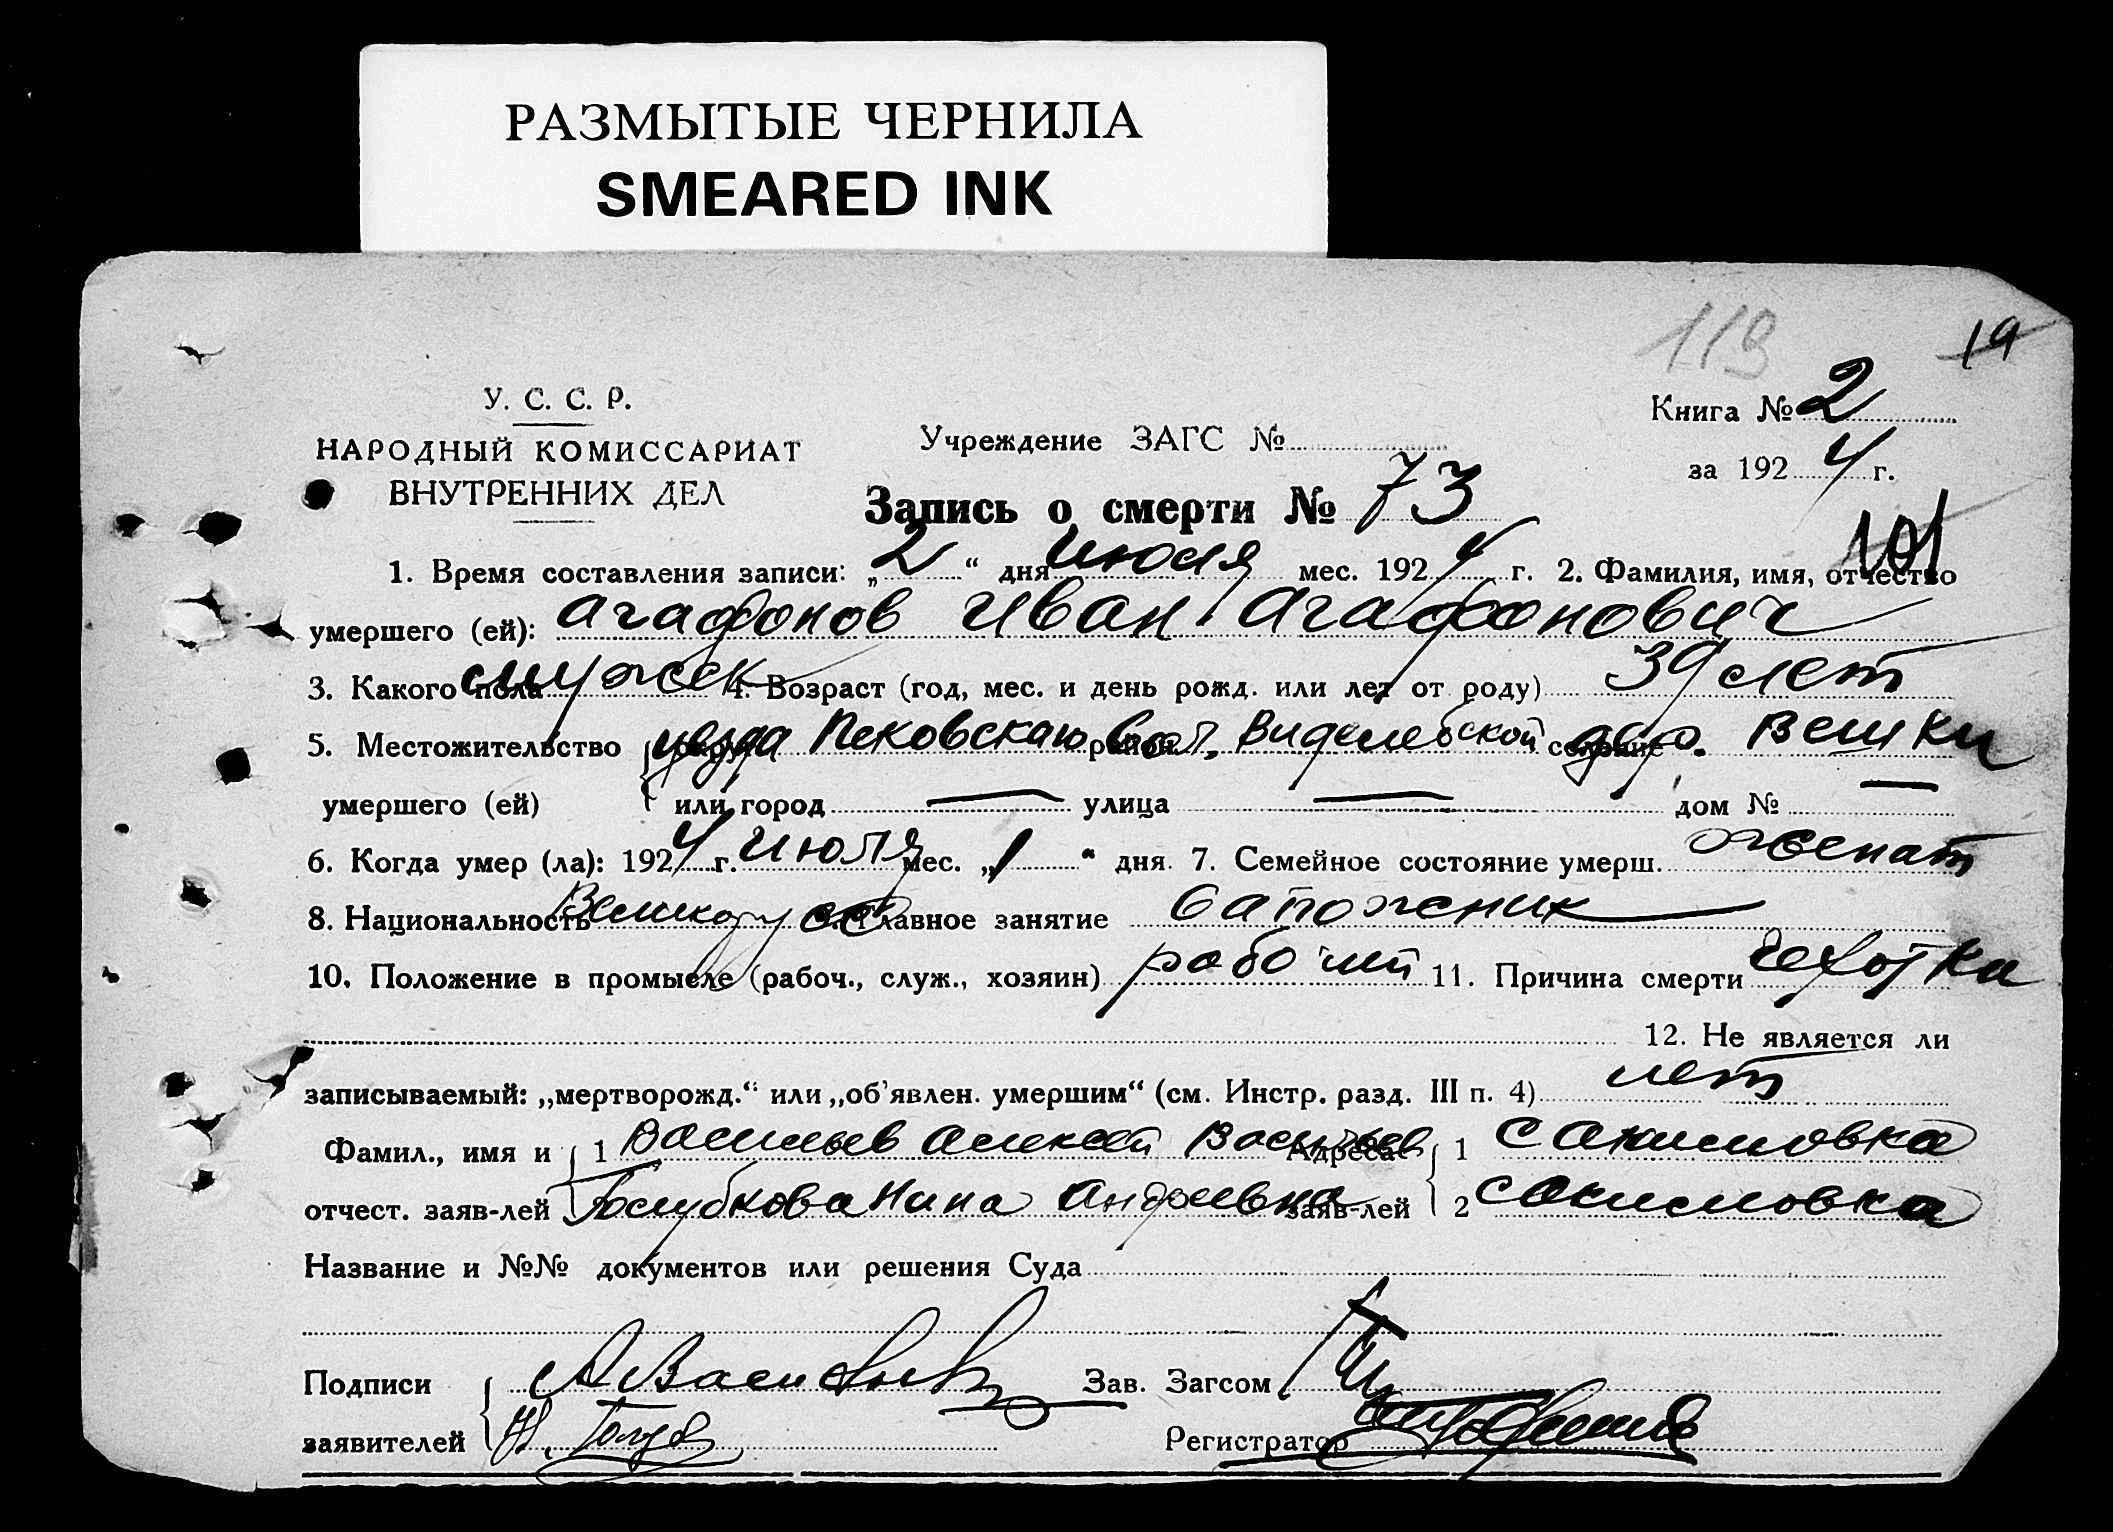 РАЗМЫТЫЕ ЧЕРНИЛА
SMEARED INK
119 19
У. С. С. Р.
НАРОДНЫЙ КОМИССАРИАТ
ВНУТРЕННИХ ДЕЛ
Учреждение ЗАГС №
Книга № 2
за 1924 г.
Запись о смерти № 73
101
1. Время составления записи: „2“ дня Июля мес. 1924 г. 2. Фамилия, имя, отчество
умершего (ей): Агафонов Иван Агафонович
3. Какого пола мужск 4. Возраст (год, мес. и день рожд. или лет от роду) 39 лет
5. Местожительство округ уезда Псковскаго район вол. Виделебской селение дер. Вешки
умершего (ей) или город — улица — дом № —
6. Когда умер (ла): 1924 г. Июля мес. „1“ дня. 7. Семейное состояние умерш. женат
8. Национальность Великорусс 9. Главное занятие Сапожник
10. Положение в промысле (рабоч., служ., хозяин) рабочий 11. Причина смерти Чехотка
12. Не является ли
записываемый: „мертворожд.“ или „об'явлен. умершим“ (см. Инстр. разд. III п. 4) нет
Фамил., имя и 1 Васильев Алексей Васильев Адреса 1
отчест. заяв-лей Голубкова Нина Андреевна заяв-лей 2
Название и №№ документов или решения Суда
Подписи А Васильев Зав. Загсом
заявителей Н. Голуб Регистратор